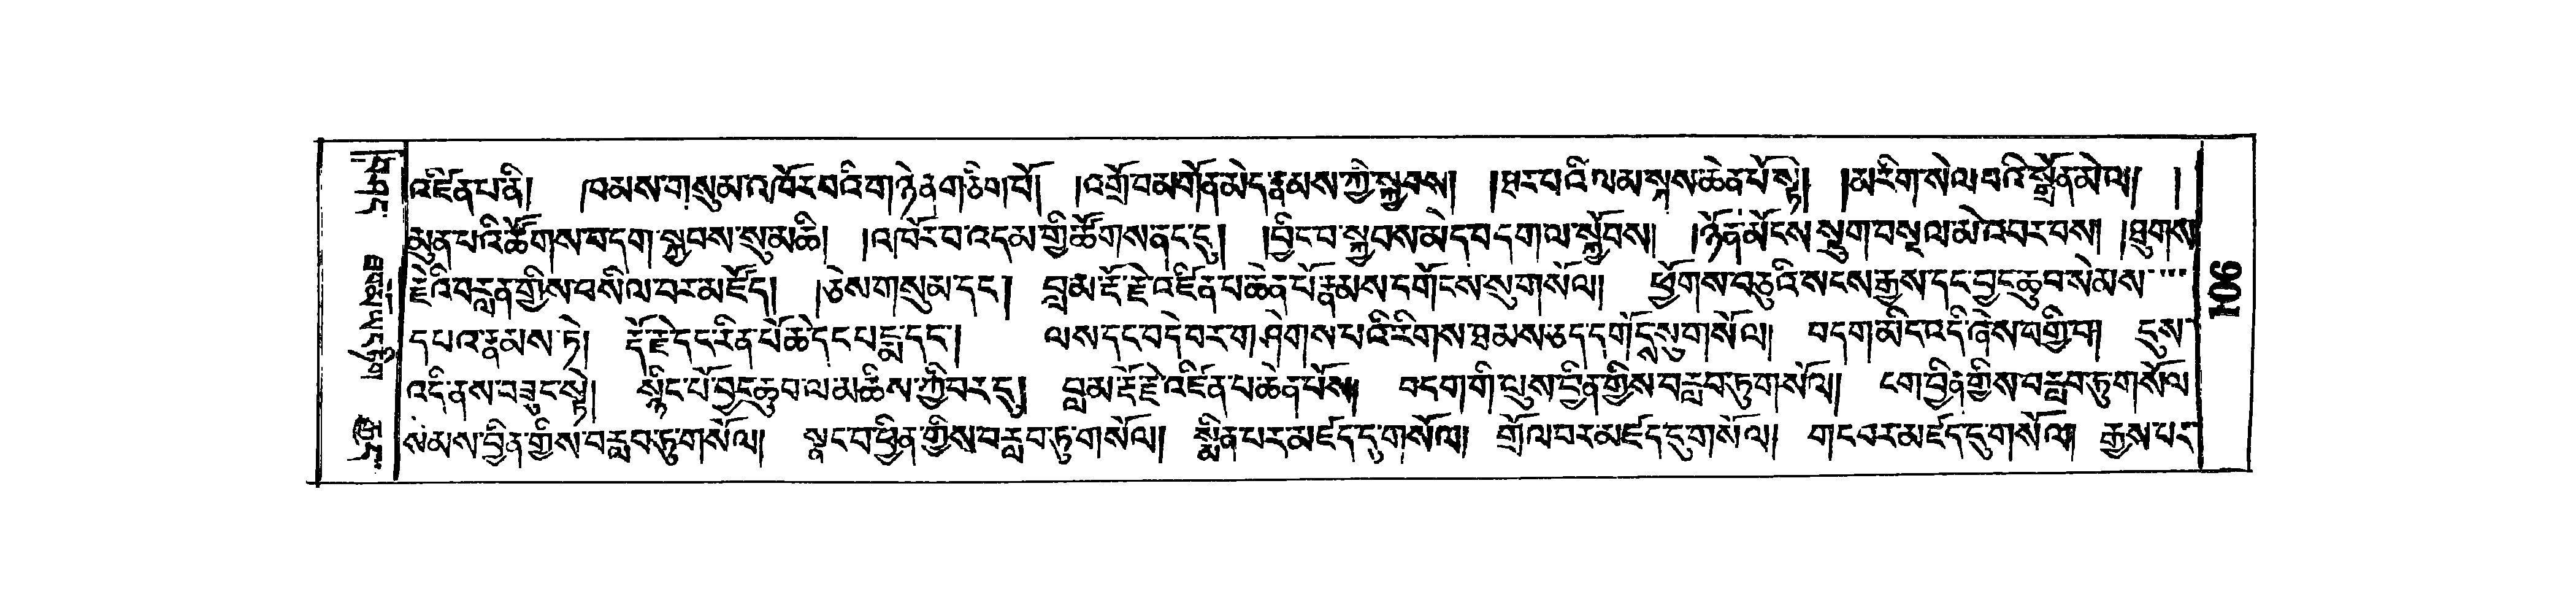 འཛིན་པ་ནི། །ཁམས་གསུམ་འཁོར་བའི་གཉེན་གཅིག་པོ། །འགྲོ་བ་མགོན་མེད་རྣམས་ཀྱི་སྐྱབས། །ཐར་པའི་ལམ་སྐས་ཆེན་པོ་སྟེ། །མ་རིག་སེལ་བའི་སྒྲོན་མེ་ལ། །
མུན་པའི་ཚོགས་བདག་སྐྱབས་སུ་མཆི། །འཁོར་བ་འདམ་གྱི་ཚོགས་ནང་དུ། །བྱིང་བ་སྐྱབས་མེད་བདག་ལ་སྐྱོབས། །ཉོན་མོངས་སྡུག་བསྔལ་མེ་འབར་བས། །ཐུགས་
རྗེའི་བརླན་གྱིས་བསིལ་བར་མཛོད། །ཅེས་གསུམ་དང་། བླ་མ་རྡོ་རྗེ་འཛིན་པ་ཆེན་པོ་རྣམས་དགོངས་སུ་གསོལ། ཕྱོགས་བཅུའི་སངས་རྒྱས་དང་བྱང་ཆུབ་སེམས་
དཔའ་རྣམས་ཏེ། རྡོ་རྗེ་དང་རིན་པོ་ཆེ་དང་པདྨ་དང་། ལས་དང་བདེ་བར་གཤེགས་པའི་རིགས་ཐམས་ཅད་དགོངས་སུ་གསོལ། བདག་མིང་འདི་ཞེས་བགྱི་བ། དུས་
འདི་ནས་བཟུང་སྟེ། སྙིང་པོ་བྱང་ཆུབ་ལ་མཆིས་ཀྱི་བར་དུ། བླ་མ་རྡོ་རྗེ་འཛིན་པ་ཆེན་པོས། བདག་གི་ལུས་བྱིན་གྱིས་བརླབ་ཏུ་གསོལ། ངག་བྱིན་གྱིས་བརླབ་ཏུ་གསོལ
སེམས་བྱིན་གྱིས་བརླབ་ཏུ་གསོལ། སྣང་བ་བྱིན་གྱིས་བརླབ་ཏུ་གསོལ། སྨིན་པར་མཛད་དུ་གསོལ། གྲོལ་བར་མཛད་དུ་གསོལ། གང་བར་མཛད་དུ་གསོལ། རྒྱས་པར་
101